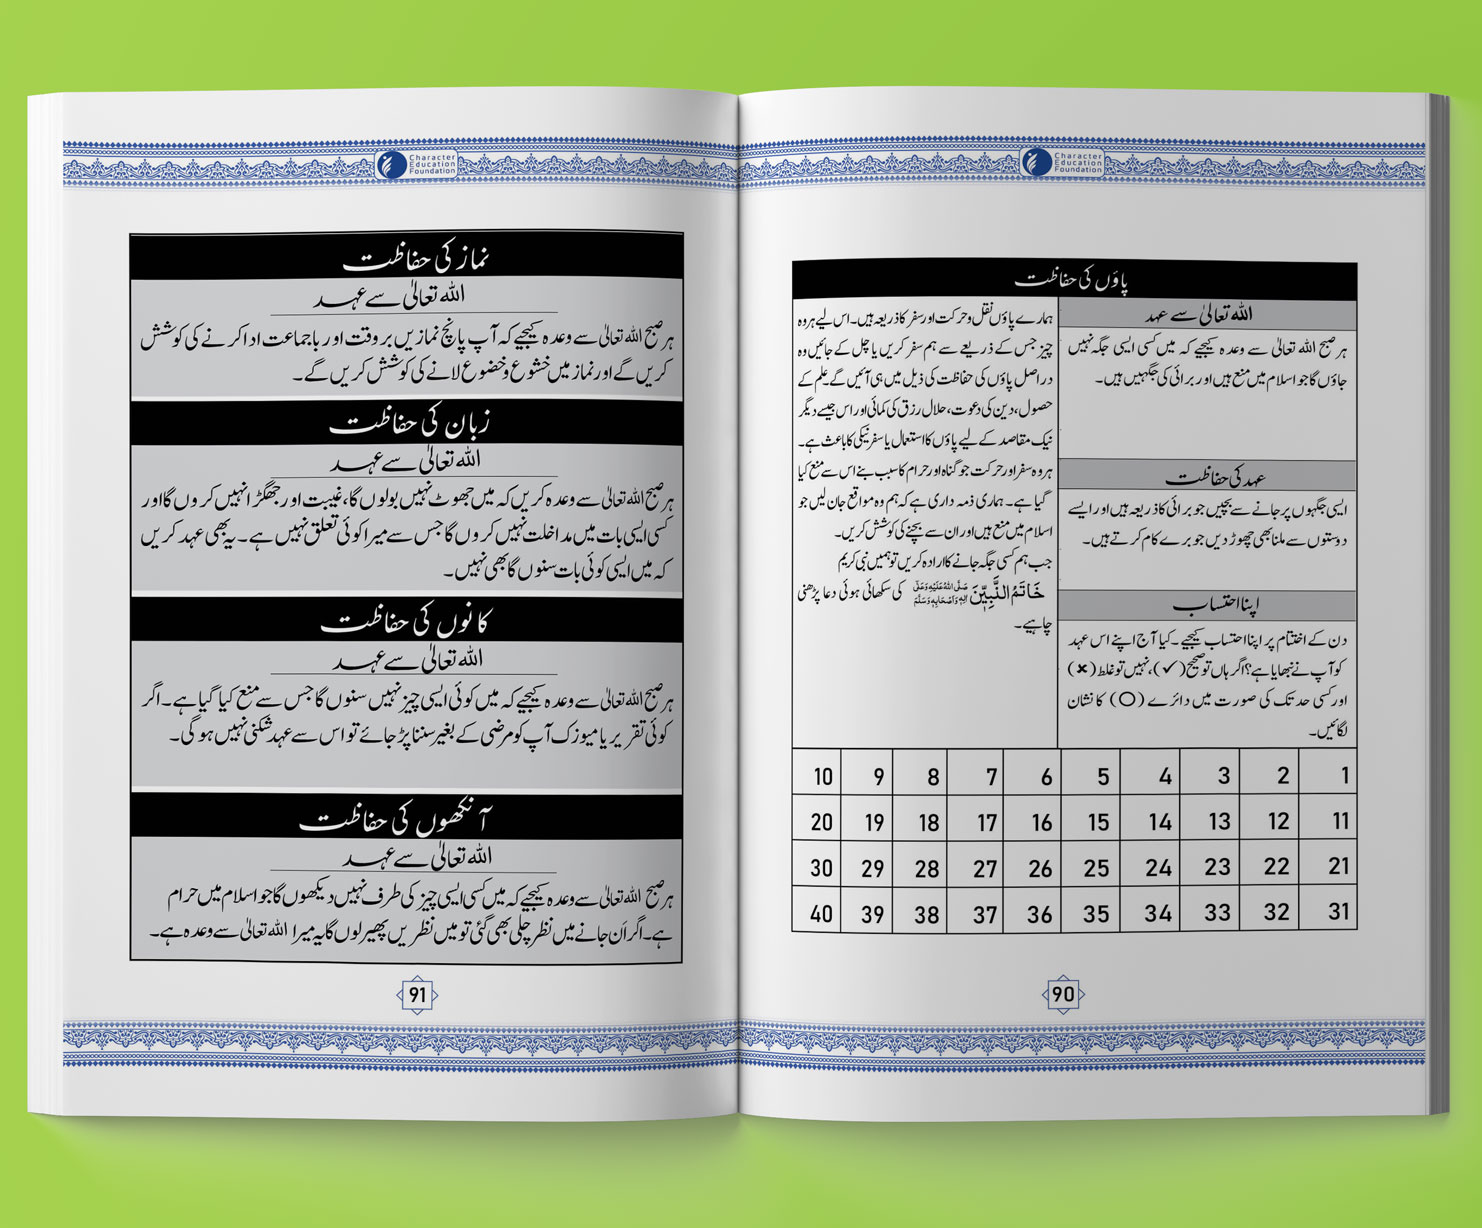 Character
Education
Foundation
پاؤں کی حفاظت
اللہ تعالیٰ سے عہد
ہر صبح اللہ تعالیٰ سے وعدہ کیجیے کہ میں کسی ایسی جگہ نہیں
جاؤں گا جو اسلام میں منع ہیں اور برائی کی جگہیں ہیں۔
عہد کی حفاظت
ایسی جگہوں پر جانے سے بچیں جو برائی کا ذریعہ ہیں اور ایسے
دوستوں سے ملنا بھی چھوڑ دیں جو برے کام کرتے ہیں۔
اپنا احتساب
دن کے اختتام پر اپنا احتساب کیجیے۔ کیا آج اپنے اس عہد
کو آپ نے نبھایا ہے؟ اگر ہاں تو صحیح (✓)، نہیں تو غلط (✖)
اور کسی حد تک کی صورت میں دائرے (O) کا نشان
لگائیں۔
ہمارے پاؤں نقل و حرکت اور سفر کا ذریعہ ہیں۔ اس لیے ہر وہ
چیز جس کے ذریعے سے ہم سفر کریں یا چل کے جائیں وہ
دراصل پاؤں کی حفاظت کی ذیل میں ہی آئیں گے۔ علم کے
حصول، دین کی دعوت، حلال رزق کی کمائی اور اس جیسے دیگر
نیک مقاصد کے لیے پاؤں کا استعمال یا سفر نیکی کا باعث ہے۔
ہر وہ سفر اور حرکت جو گناہ اور حرام کا سبب بنے اس سے منع کیا
گیا ہے۔ ہماری ذمہ داری ہے کہ ہم وہ مواقع جان لیں جو
اسلام میں منع ہیں اور ان سے بچنے کی کوشش کریں۔
جب ہم کسی جگہ جانے کا ارادہ کریں تو ہمیں نبی کریم
خَاتَمُ النَّبِیّٖنَ صَلَّی اللہُ عَلَیْہِ وَعَلٰی اٰلِہٖ وَاَصْحَابِہٖ وَسَلَّمَ کی سکھائی ہوئی دعا پڑھنی
چاہیے۔
1 2 3 4 5 6 7 8 9 10
11 12 13 14 15 16 17 18 19 20
21 22 23 24 25 26 27 28 29 30
31 32 33 34 35 36 37 38 39 40
90
Character
Education
Foundation
نماز کی حفاظت
اللہ تعالیٰ سے عہد
ہر صبح اللہ تعالیٰ سے وعدہ کیجیے کہ آپ پانچ نمازیں بر وقت اور باجماعت ادا کرنے کی کوشش
کریں گے اور نماز میں خشوع و خضوع لانے کی کوشش کریں گے۔
زبان کی حفاظت
اللہ تعالیٰ سے عہد
ہر صبح اللہ تعالیٰ سے وعدہ کریں کہ میں جھوٹ نہیں بولوں گا، غیبت اور جھگڑا نہیں کروں گا اور
کسی ایسی بات میں مداخلت نہیں کروں گا جس سے میرا کوئی تعلق نہیں ہے۔ یہ بھی عہد کریں
کہ میں ایسی کوئی بات سنوں گا بھی نہیں۔
کانوں کی حفاظت
اللہ تعالیٰ سے عہد
ہر صبح اللہ تعالیٰ سے وعدہ کیجیے کہ میں کوئی ایسی چیز نہیں سنوں گا جس سے منع کیا گیا ہے۔ اگر
کوئی تقریر یا میوزک آپ کو مرضی کے بغیر سننا پڑ جائے تو اس سے عہد شکنی نہیں ہو گی۔
آنکھوں کی حفاظت
اللہ تعالیٰ سے عہد
ہر صبح اللہ تعالیٰ سے وعدہ کیجیے کہ میں کسی ایسی چیز کی طرف نہیں دیکھوں گا جو اسلام میں حرام
ہے۔ اگر اَن جانے میں نظر چلی بھی گئی تو میں نظریں پھیر لوں گا یہ میرا اللہ تعالیٰ سے وعدہ ہے۔
91